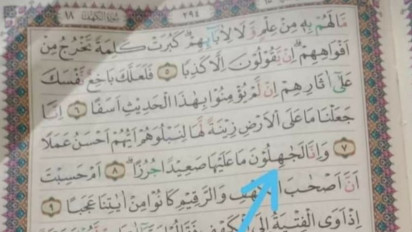 ١٨ ٢٩٤ سُورَةُ الكَهْفِ
مَّا لَهُمْ بِهِ مِنْ عِلْمٍ وَّلَا لِاٰبَآئِهِمْ كَبُرَتْ كَلِمَةً تَخْرُجُ مِنْ
اَفْوَاهِهِمْ اِنْ يَّقُوْلُوْنَ اِلَّا كَذِبًا ٥ فَلَعَلَّكَ بَاخِعٌ نَّفْسَكَ
عَلٰٓى اٰثَارِهِمْ اِنْ لَّمْ يُؤْمِنُوْا بِهٰذَا الْحَدِيْثِ اَسَفًا ٦ اِنَّا
جَعَلْنَا مَا عَلَى الْاَرْضِ زِيْنَةً لَّهَا لِنَبْلُوَهُمْ اَيُّهُمْ اَحْسَنُ عَمَلًا
٧ وَاِنَّا لَجٰهِلُوْنَ مَا عَلَيْهَا صَعِيْدًا جُرُزًا ٨ اَمْ حَسِبْتَ
اَنَّ اَصْحٰبَ وَالرَّقِيْمِ كَانُوْا مِنْ اٰيٰتِنَا عَجَبًا ٩
اِذْ اَوَى الْفِتْيَةُ اِلَى